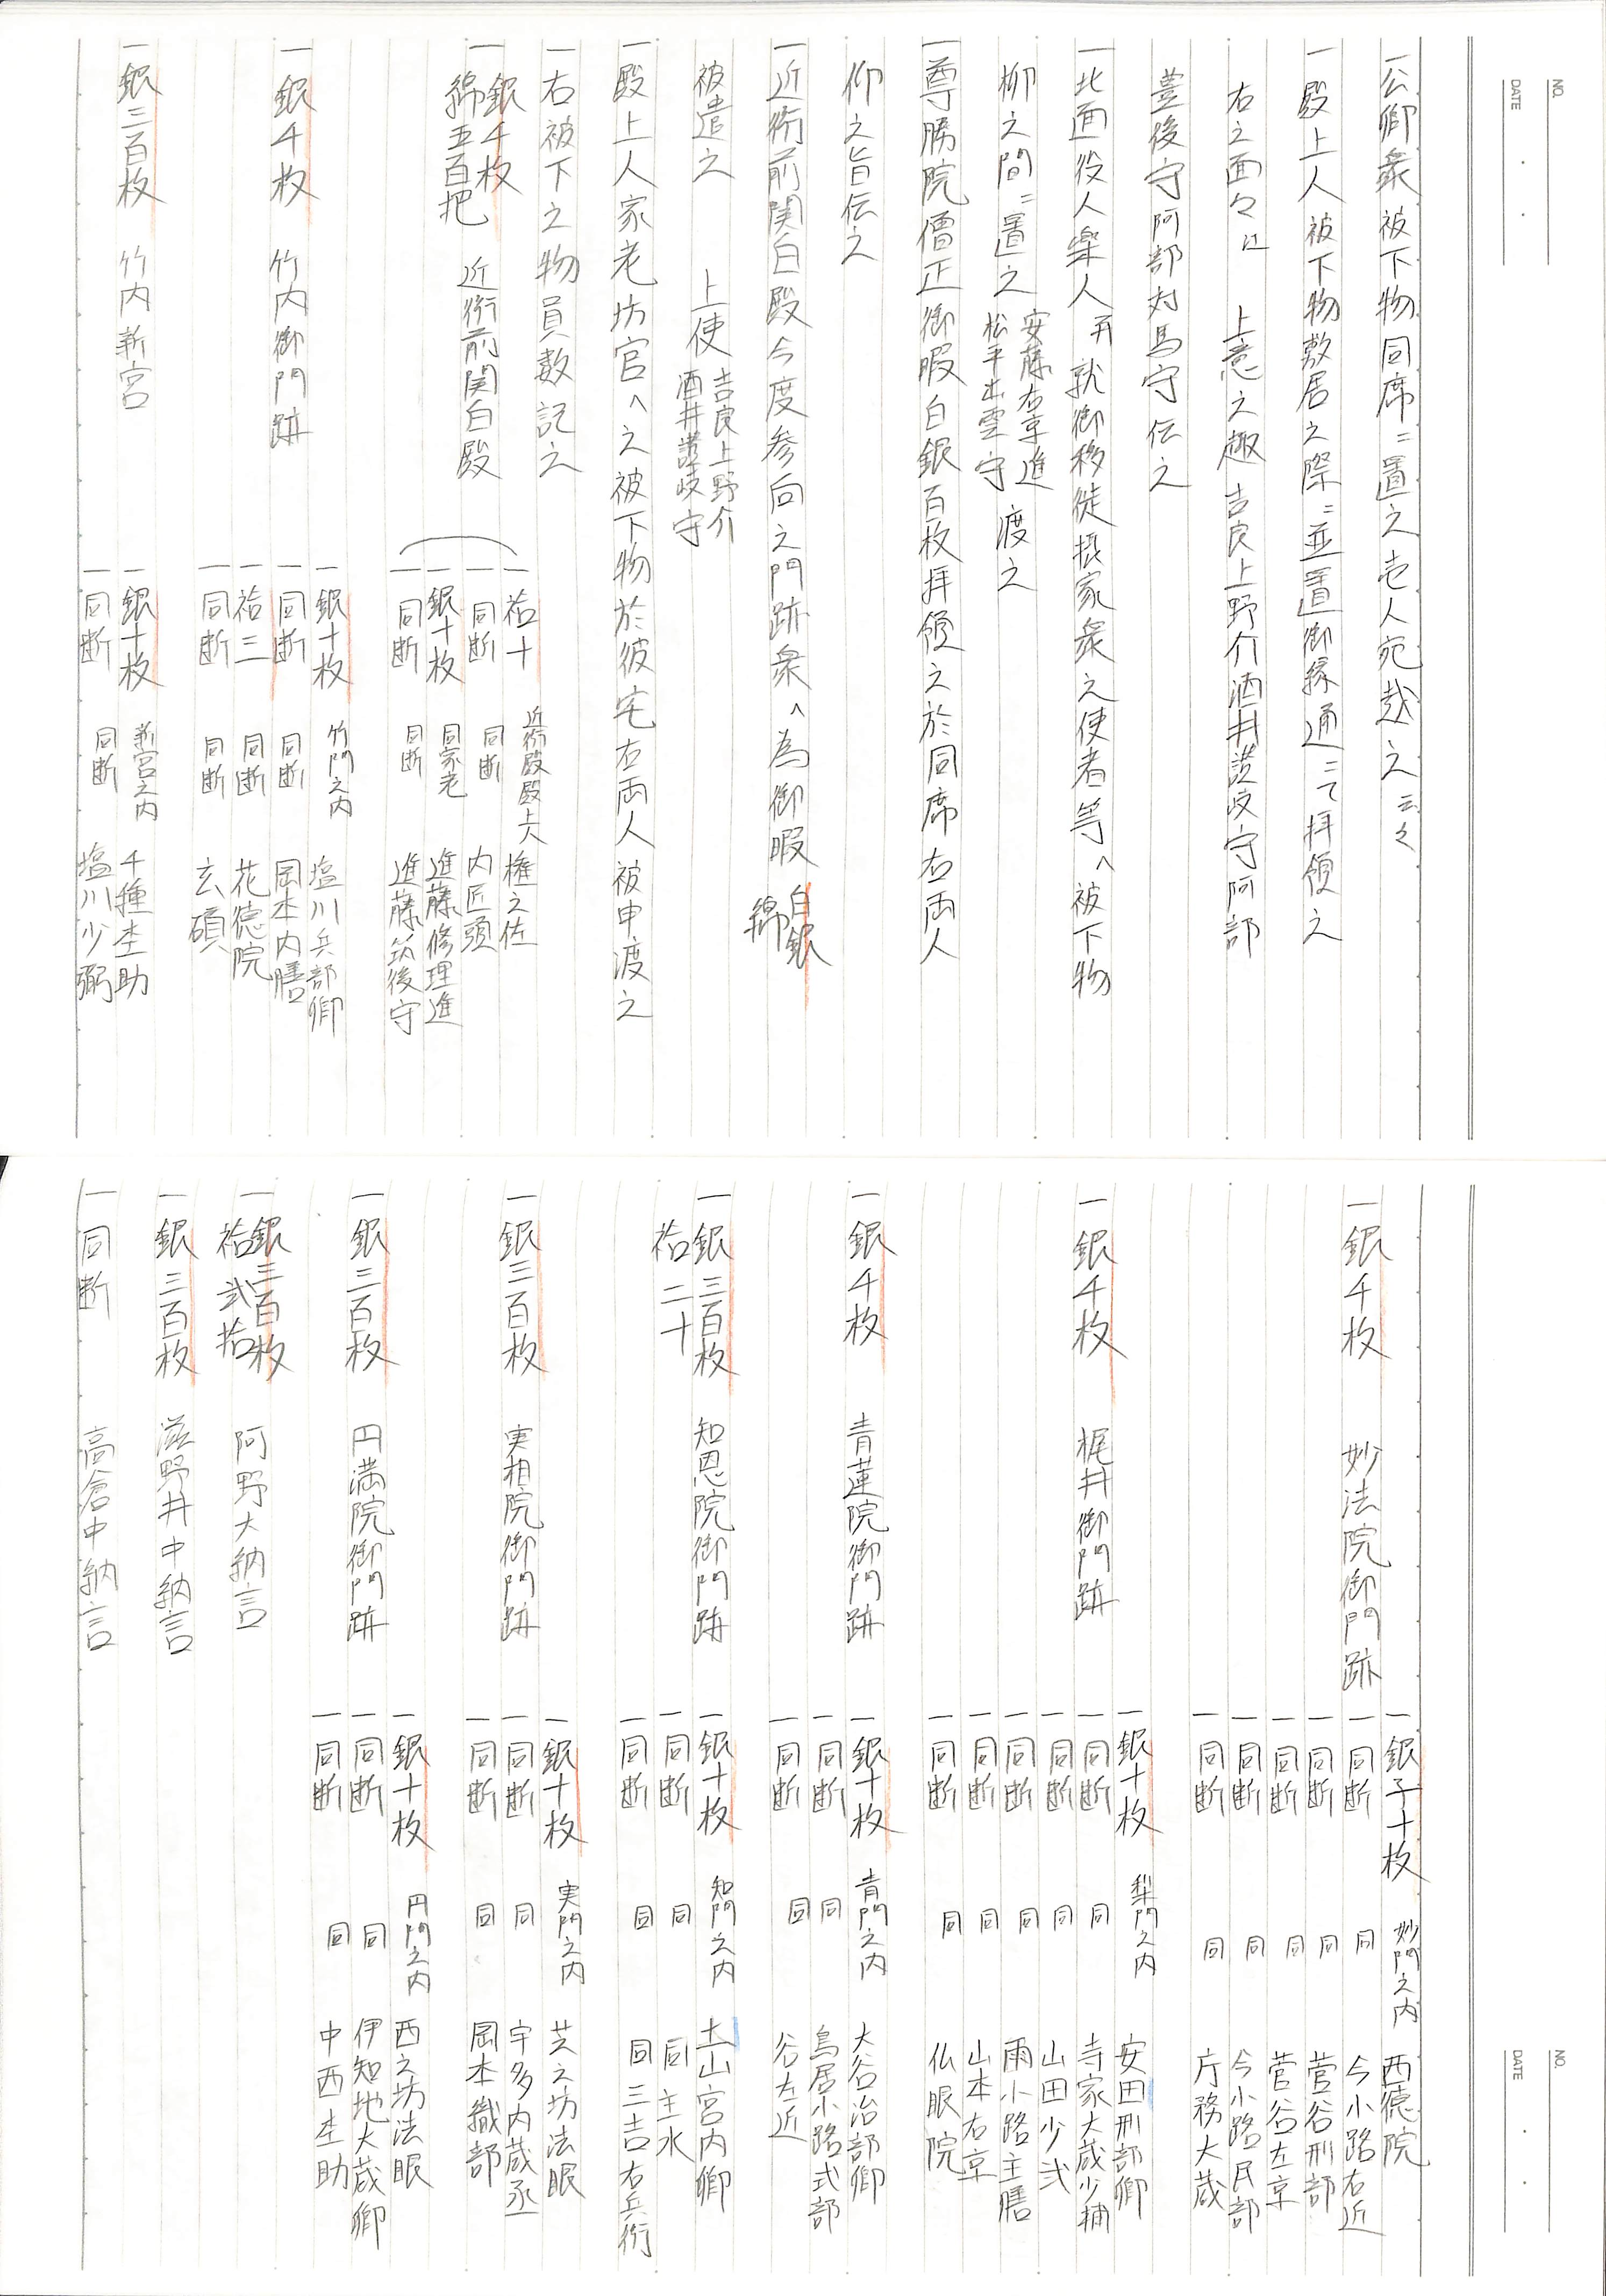 NO.
DATE
一公卿衆被下物同席ニ置之壱人宛越之云々
一殿上人被下物敷居之際ニ並置御縁通ニて拝領之
右之面々江 上意之趣吉良上野介酒井讃岐守阿部
豊後守阿部対馬守伝之
一北面役人楽人并就御移徙摂家衆之使者等へ被下物
柳之間ニ置之 安藤右京進 渡之
松平出雲守
一尊勝院僧正御暇白銀百枚拝領之於同席右両人
仰之旨伝之
一近衛前関白殿今度参向之門跡衆へ為御暇 白銀
綿
被遣之 上使 吉良上野介
酒井讃岐守
一殿上人家老坊官へ之被下物於彼宅右両人被申渡之
一右被下之物員数記之
一銀千枚
綿五百把 近衛前関白殿
一袷十 近衛殿殿上人 権之佐
一同断 同断 内匠頭
一銀十枚 同家老 進藤修理進
一同断 同断 進藤筑後守
一銀千枚 竹内御門跡
一銀十枚 竹門之内 塩川兵部卿
一同断 同断 岡本内膳
一袷三 同断 花徳院
一同断 同断 玄碩
一銀三百枚 竹内新宮
一銀十枚 新宮之内 千種杢助
一同断 同断 塩川少弼
NO.
DATE
一銀千枚 妙法院御門跡
一銀子十枚 妙門之内 西徳院
一同断 同 今小路右近
一同断 同 菅谷刑部
一同断 同 菅谷左京
一同断 同 今小路民部
一同断 同 庁務大蔵
一銀千枚 梶井御門跡
一銀十枚 梨門之内 安田刑部卿
一同断 同 寺家大蔵少輔
一同断 同 山田少弐
一同断 同 雨小路主膳
一同断 同 山本右京
一同断 同 仏眼院
一銀千枚 青蓮院御門跡
一銀十枚 青門之内 大谷治部卿
一同断 同 鳥居小路式部
一同断 同 谷左近
一銀三百枚
袷二十 知恩院御門跡
一銀十枚 知門之内 土山宮内卿
一同断 同 同主水
一同断 同 同三吉右兵衛
一銀三百枚 実相院御門跡
一銀十枚 実門之内 芝之坊法眼
一同断 同 宇多内蔵丞
一同断 同 岡本織部
一銀三百枚 円満院御門跡
一銀十枚 円門之内 西之坊法眼
一同断 同 伊知地大蔵卿
一同断 同 中西杢助
一銀三百枚
袷弐拾 阿野大納言
一銀三百枚 滋野井中納言
一同断 高倉中納言